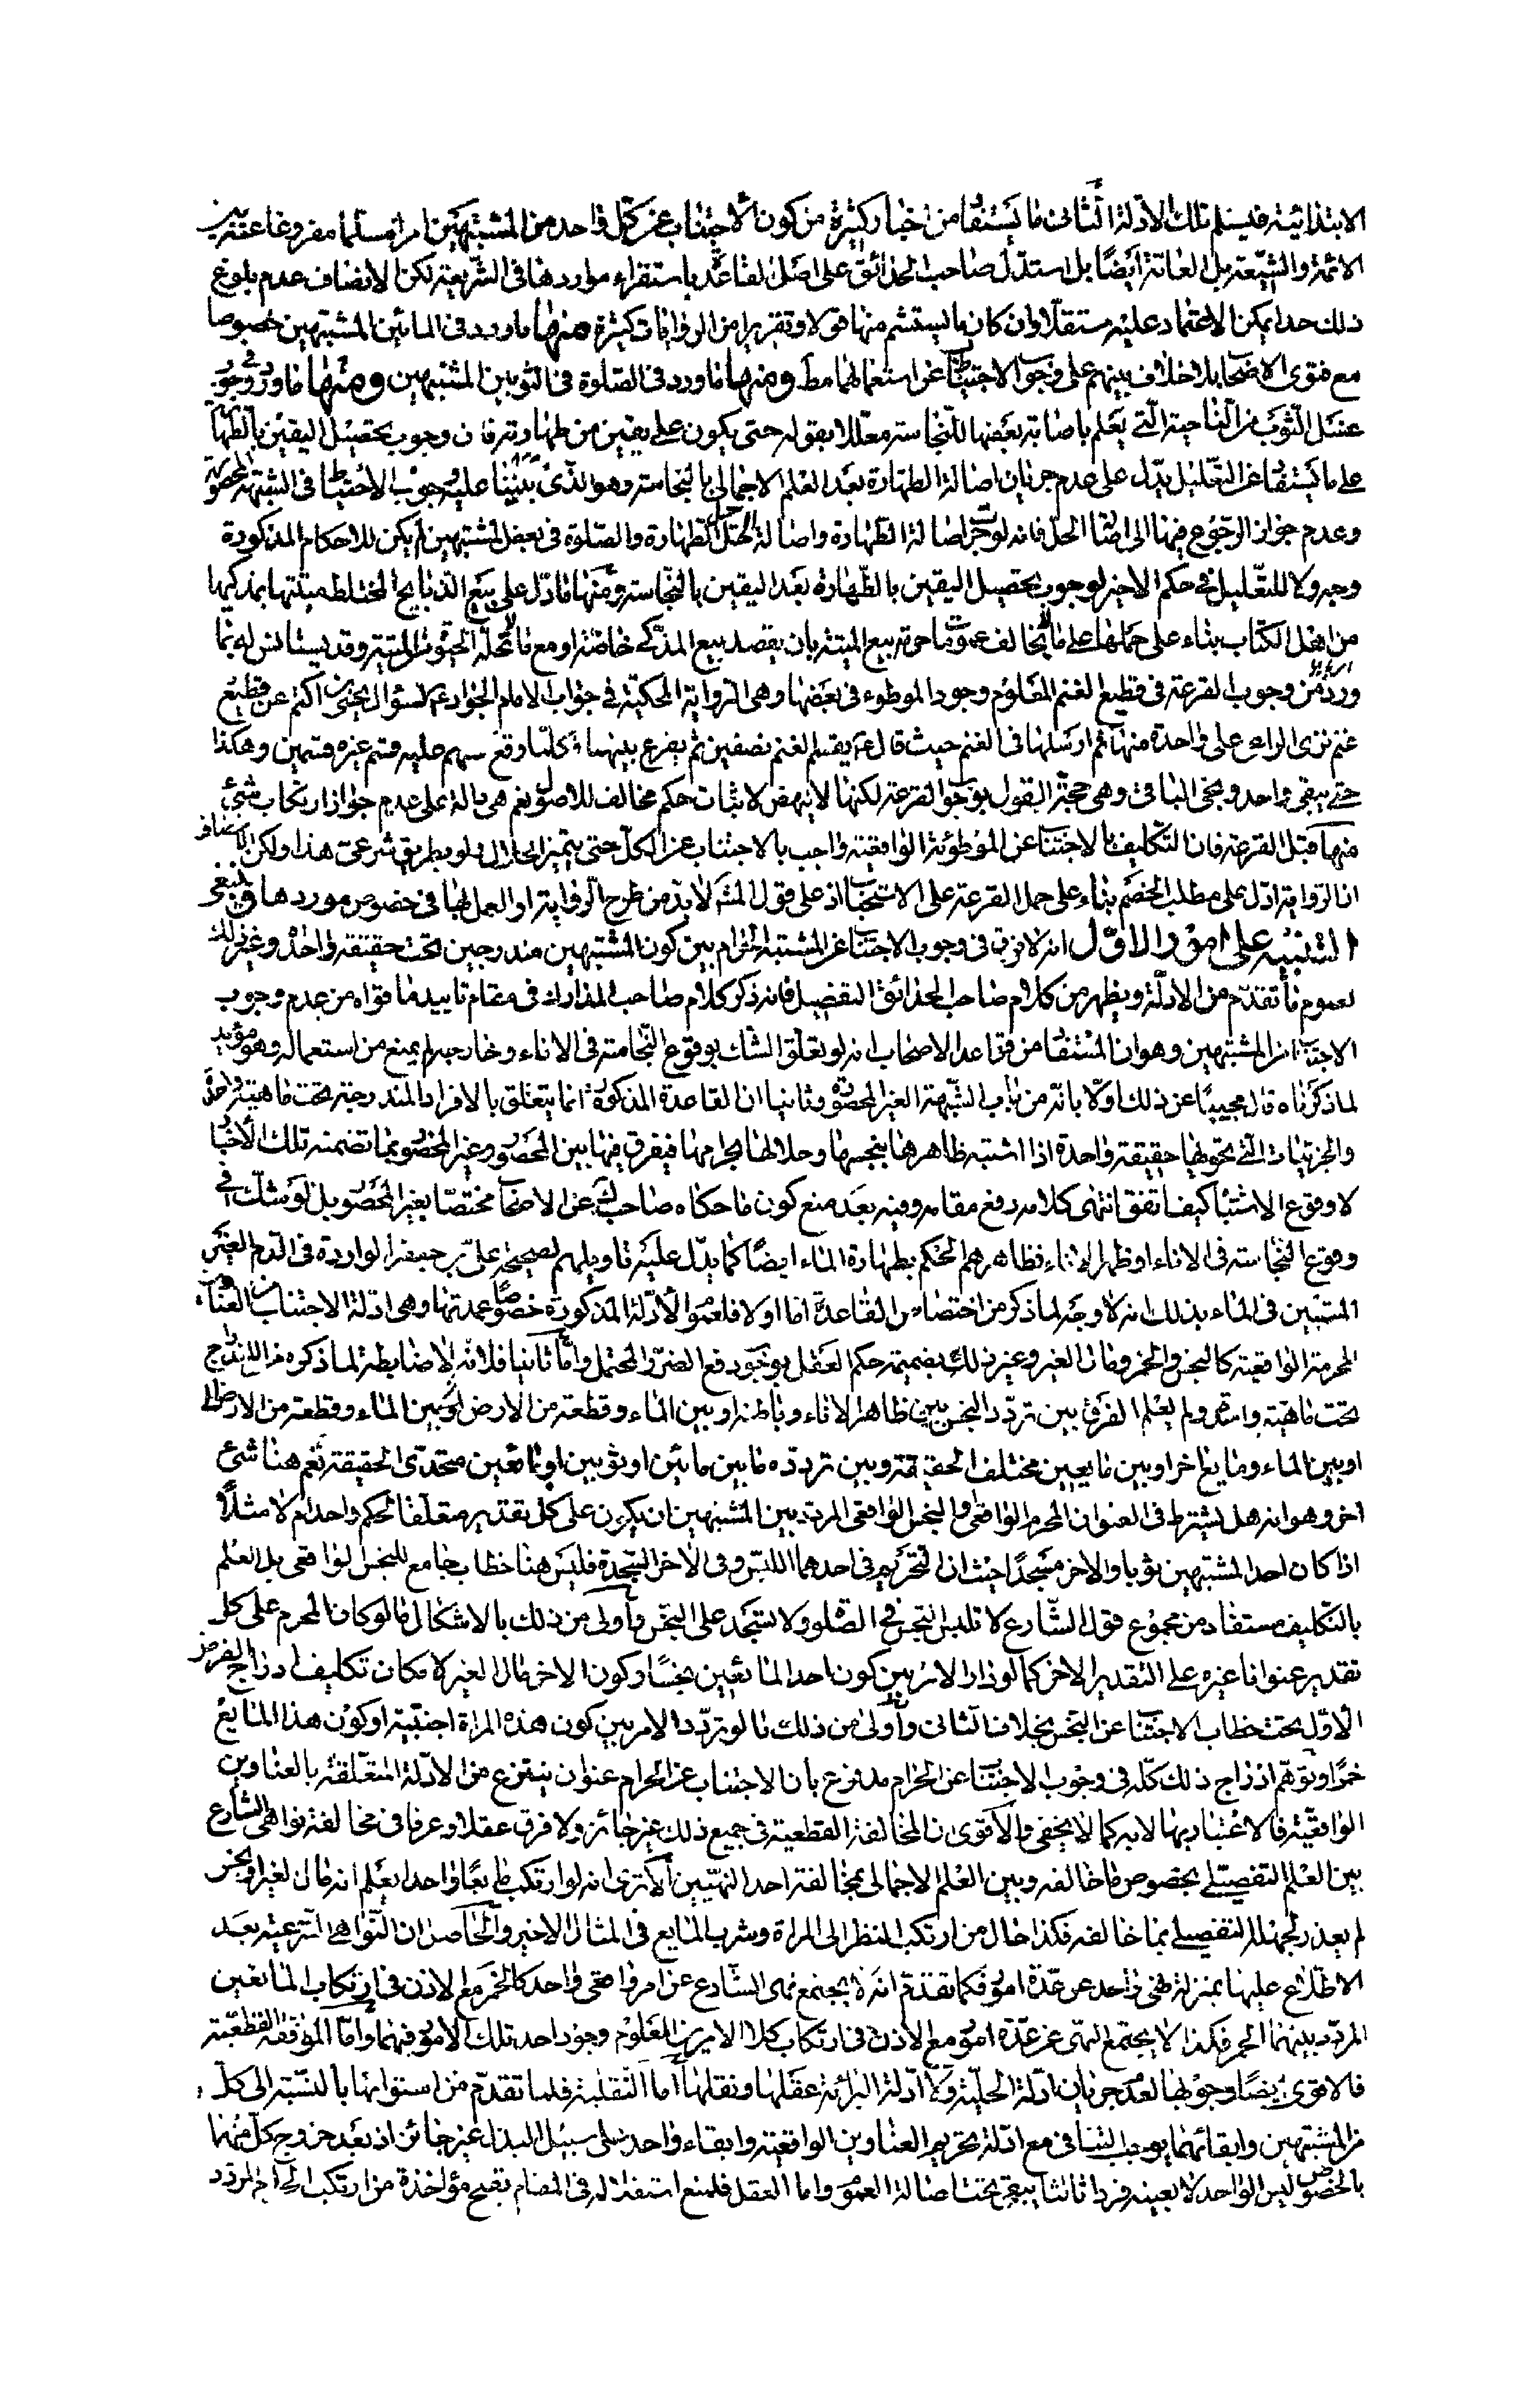 الابتدائية فيسلم تلك الادلة الثانى ما يستفا من اخبار كثيرة من كون الاجتناب عن كل واحد من المشتبهين امرا مسلما مفروغا عنه بين
الائمة والشيعة بل العامة ايضا بل استدل صاحب الحدائق على اصل القاعدة باستقراء مواردها فى الشريعة لكن الانصاف عدم بلوغ
ذلك حدا يمكن الاعتماد عليه مستقلا وان كان ما يستشم منها قولا وتقريرا من الروايات كثيرة منها ما ورد فى المائين المشتبهين خصوصا
مع فتوى الاصحاب بلا خلاف بينهم على وجوب الاجتناب عن استعمالهما مط ومنها ما ورد فى الصلوة فى الثوبين المشتبهين ومنها ما ورد فى وجوب
غسل الثوب من الناحية التى يعلم باصابة بعضها للنجاسة معللا بقوله حتى يكون على يقين من طهارته فان وجوب تحصيل اليقين بالطهارة
على ما يستفا من التعليل يدل على عدم جريان اصالة الطهارة بعد العلم الاجمالى بالنجاسة وهو الذى بنينا عليه وجوب الاحتياط فى الشبهة المحصورة
وعدم جواز الرجوع فيها الى اصالة الحل فانه لو جرت اصالة الطهارة واصالة حل الطهارة والصلوة فى بعض المشتبهين لم يكن للاحكام المذكورة
وجه ولا للتعليل فى حكم الاخير لوجوب تحصيل اليقين بالطهارة بعد اليقين بالنجاسة ومنها ما دل على بيع الذبايح المختلط ميتتها بمذكيها
من اهل الكتاب بناء على حملها على ما لا يخالف عموم حرمة بيع الميتة بان يقصد بيع المذكى خاصة او مع ما لا تحله الحيوة من الميتة وقد يستانس له بما
ورد من وجوب القرعة فى قطيع الغنم المعلوم وجود الموطوء فى بعضها وهى الرواية المحكية فى جواب الامام الجواد ع لسؤال يحيى بن اكثم عن قطيع
غنم نزى الراعى على واحدة منها ثم ارسلها فى الغنم حيث قال ع يقسم الغنم نصفين ثم يقرع بينهما فكلما وقع سهم عليه قسم غيره قسمين وهكذا
حتى يبقى واحد ونجى الباقى وهى حجة القول بوجوب القرعة لكنها لا تنهض لاثبات حكم مخالف للاصول نعم هى دالة على عدم جواز ارتكاب شئ
منها قبل القرعة فان التكليف بالاجتناب عن الموطوئة الواقعية واجب بالاجتناب عن الكل حتى يتميز الحلال ولو بطريق شرعى هذا ولكن الانصاف
ان الرواية ادل على مطلب الخصم بناء على حمل القرعة على الاستحباب اذ على قول المش لا بد من طرح الرواية او العمل بها فى خصوص موردها وينبغى
التنبيه على امور الاول انه لا فرق فى وجوب الاجتناب عن المشتبه الحرام بين كون المشتبهين مندرجين تحت حقيقة واحدة وغير ذلك
لعموم ما تقدم من الادلة ويظهر من كلام صاحب الحدائق التفصيل فانه ذكر كلام صاحب المدارك فى مقام تاييد ما قواه من عدم وجوب
الاجتناب من المشتبهين وهو ان المستفا من قواعد الاصحاب انه لو تعلق الشك بوقوع النجاسة فى الاناء وخارجه لم يمنع من استعماله وهو مؤيد
لما ذكرناه قال مجيبا عن ذلك اولا بانه من باب الشبهة الغير المحصورة وثانيا ان القاعدة المذكورة انما تتعلق بالافراد المندرجة تحت ماهية واحدة
والجزئيات التى تحويها حقيقة واحدة اذا اشتبه طاهرها بنجسها وحلالها بحرامها فيفرق فيها بين المحصور وغير المحصور بما تضمنته تلك الاخبار
لا وقوع الاشتباه كيف اتفق انتهى كلامه رفع مقامه وفيه بعد منع كون ما حكاه صاحب ك عن الاصحاب مختصا بغير المحصور بل لو شك فى
وقوع النجاسة فى الاناء او ظهر الاناء فظاهرهم الحكم بطهارة الماء ايضا كما يدل عليه تاويلهم لصحيحة على بن جعفر الواردة فى الدم الغير
المستبين فى الماء بذلك انه لا وجه لما ذكر من اختصاص القاعدة اما اولا فلعموم الادلة المذكورة خصوصا عمدتها وهى ادلة الاجتناب عن العناوين
المحرمة الواقعية كالنجس والخمر ومال الغير وغير ذلك بضميمة حكم العقل بوجوب دفع الضرر المحتمل واما ثانيا فلانه لا ضابطة لما ذكره من الاندراج
تحت ماهية واحدة ولم يعلم الفرق بين تردد النجس بين ظاهر الاناء وباطنه او بين الماء وقطعة من الارض او بين الماء وقطعة من الارض
او بين الماء ومايع اخر او بين مايعين مختلفى الحقيقة وبين تردده ما بين مائين او ثوبين او مائعين متحدى الحقيقة نعم هنا شئ
اخر وهو انه هل يشترط فى العنوان المحرم الواقعى او النجس الواقعى المردد بين المشتبهين ان يكون على كل تقدير متعلقا لحكم واحد ام لا مثلا
اذا كان احد المشتبهين ثوبا والاخر مسجدا حيث ان المحرم فى احدهما اللبس وفى الاخر السجدة فليس هنا خطاب جامع للنجس الواقعى بل العلم
بالتكليف مستفاد من مجموع قول الشارع لا تلبس النجس فى الصلوة ولا تسجد على النجس واولى من ذلك بالاشكال ما لو كان المحرم على كل
تقدير عنوانا غيره على التقدير الاخر كما لو دار الامر بين كون احد المائعين نجسا وكون الاخر مال الغير لامكان تكليف ادراج الفرض
الاول تحت خطاب الاجتناب عن النجس بخلاف الثانى واولى من ذلك ما لو تردد الامر بين كون هذه المراة اجنبية او كون هذا المايع
خمرا وتوهم ادراج ذلك كله فى وجوب الاجتناب عن الحرام مدفوع بان الاجتناب عن الحرام عنوان ينتزع من الادلة المتعلقة بالعناوين
الواقعية فالاعتبار بها لا به كما لا يخفى والاقوى ان المخالفة القطعية فى جميع ذلك غير جائز ولا فرق عقلا وعرفا فى مخالفة نواهى الشارع
بين العلم التفصيلى بخصوص ما خالفه وبين العلم الاجمالى بمخالفة احد النهيين الا ترى انه لو ارتكب مايعا واحدا يعلم انه مال الغير او نجس
لم يعذر لجهله التفصيلى بما خالفه فكذا حال من ارتكب النظر الى المراة وشرب المايع فى المثال الاخير والحاصل ان النواهى الشرعية بعد
الاطلاع عليها بمنزلة نهى واحد عن عدة امور فكما تقدم انه لا يجتمع نهى الشارع عن امر واقعى واحد كالخمر مع الاذن فى ارتكاب المائعين
المردد بينهما الخمر فكذا لا يجتمع النهى عن عدة امور مع الاذن فى ارتكاب كلا الامرين المعلوم وجود احد تلك الامور فيهما واما الموافقة القطعية
فالاقوى ايضا وجوبها لعدم جريان ادلة الحلية ولا ادلة البرائة عقلها ونقلها اما النقلية فلما تقدم من استوائها بالنسبة الى كل
من المشتبهين وابقائهما يوجب التنافى مع ادلة تحريم العناوين الواقعية وابقاء واحد على سبيل البدل غير جائز اذ بعد خروج كل منهما
بالخصوص ليس الواحد لا بعينه فردا ثالثا يبقى تحت اصالة العموم واما العقل فلمنع استقلاله فى المقام بقبح مؤاخذة من ارتكب الحرام المردد